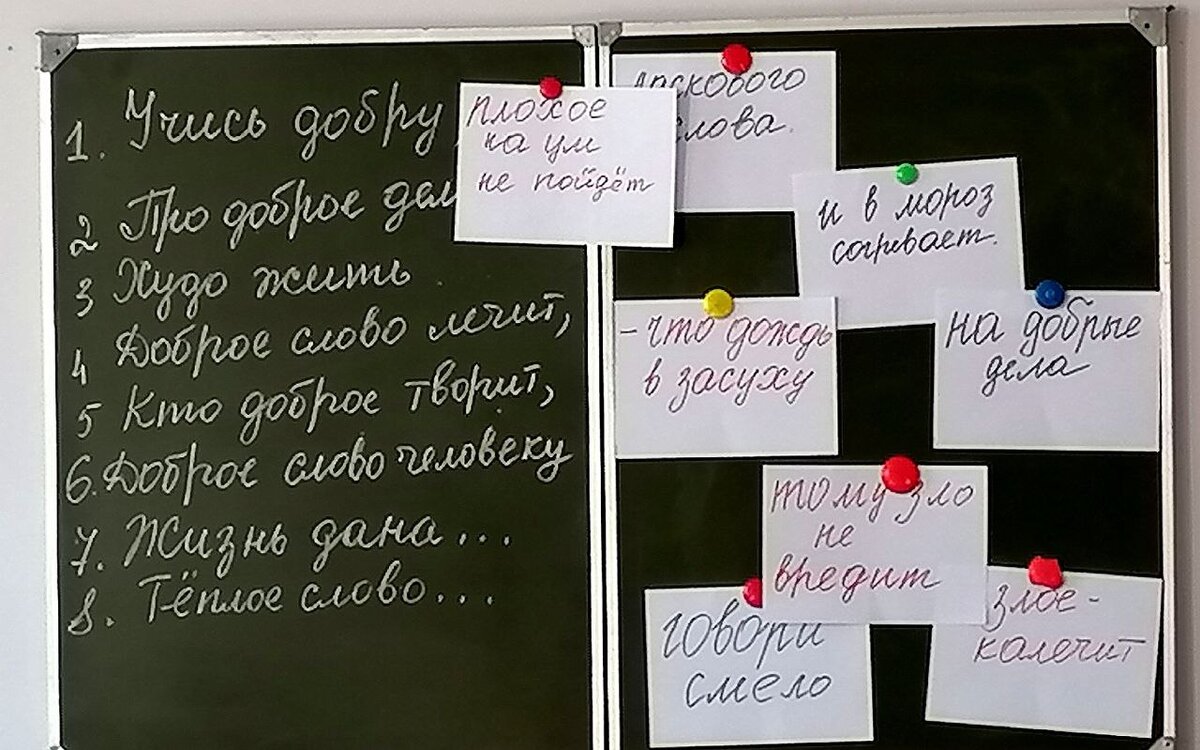 1. Учись добру
2 Про доброе дел
3 Худо жить
4 Доброе слово лечит,
5 Кто доброе творит,
6. Доброе слово человеку
7. Жизнь дана...
8. Тёплое слово...
плохое
на ум
не пойдёт
ласкового
слова.
и в мороз
согревает.
- что дождь
в засуху
на добрые
дела
тому зло
не
вредит
говори
смело
злое -
калечит